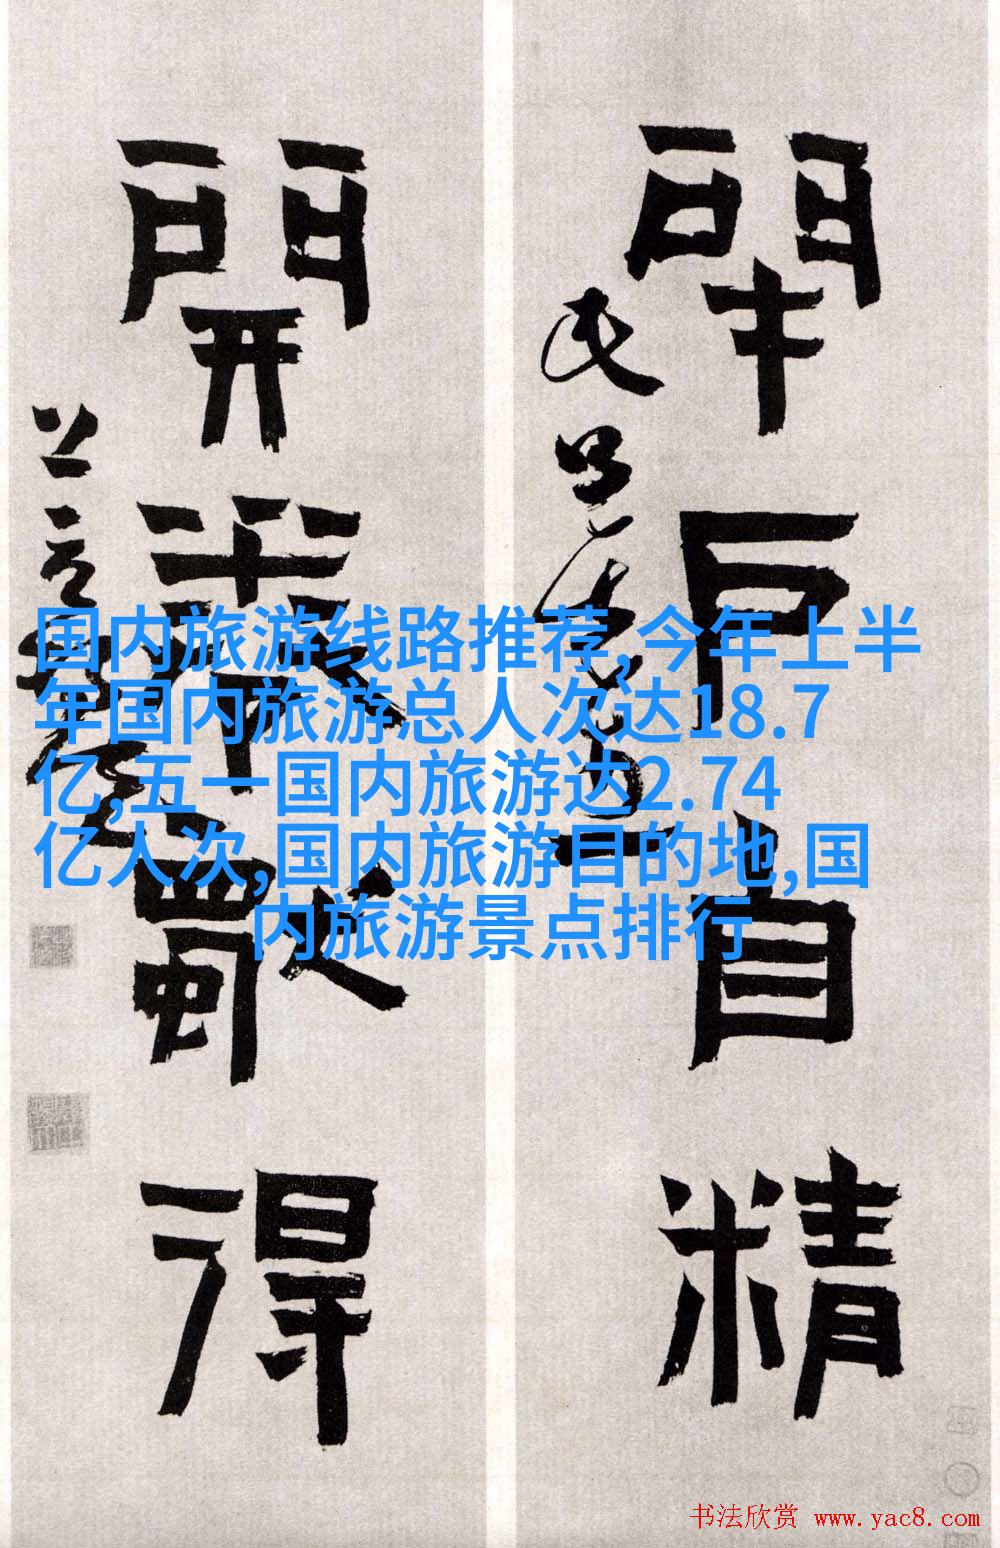 閉户自精
開卷獨得
国内旅游线路推荐,今年上半
年国内旅游总人次达18.7
亿,五一国内旅游达2.74
亿人次,国内旅游目的地,国
内旅游景点排行
书法欣赏 www.yac8.com